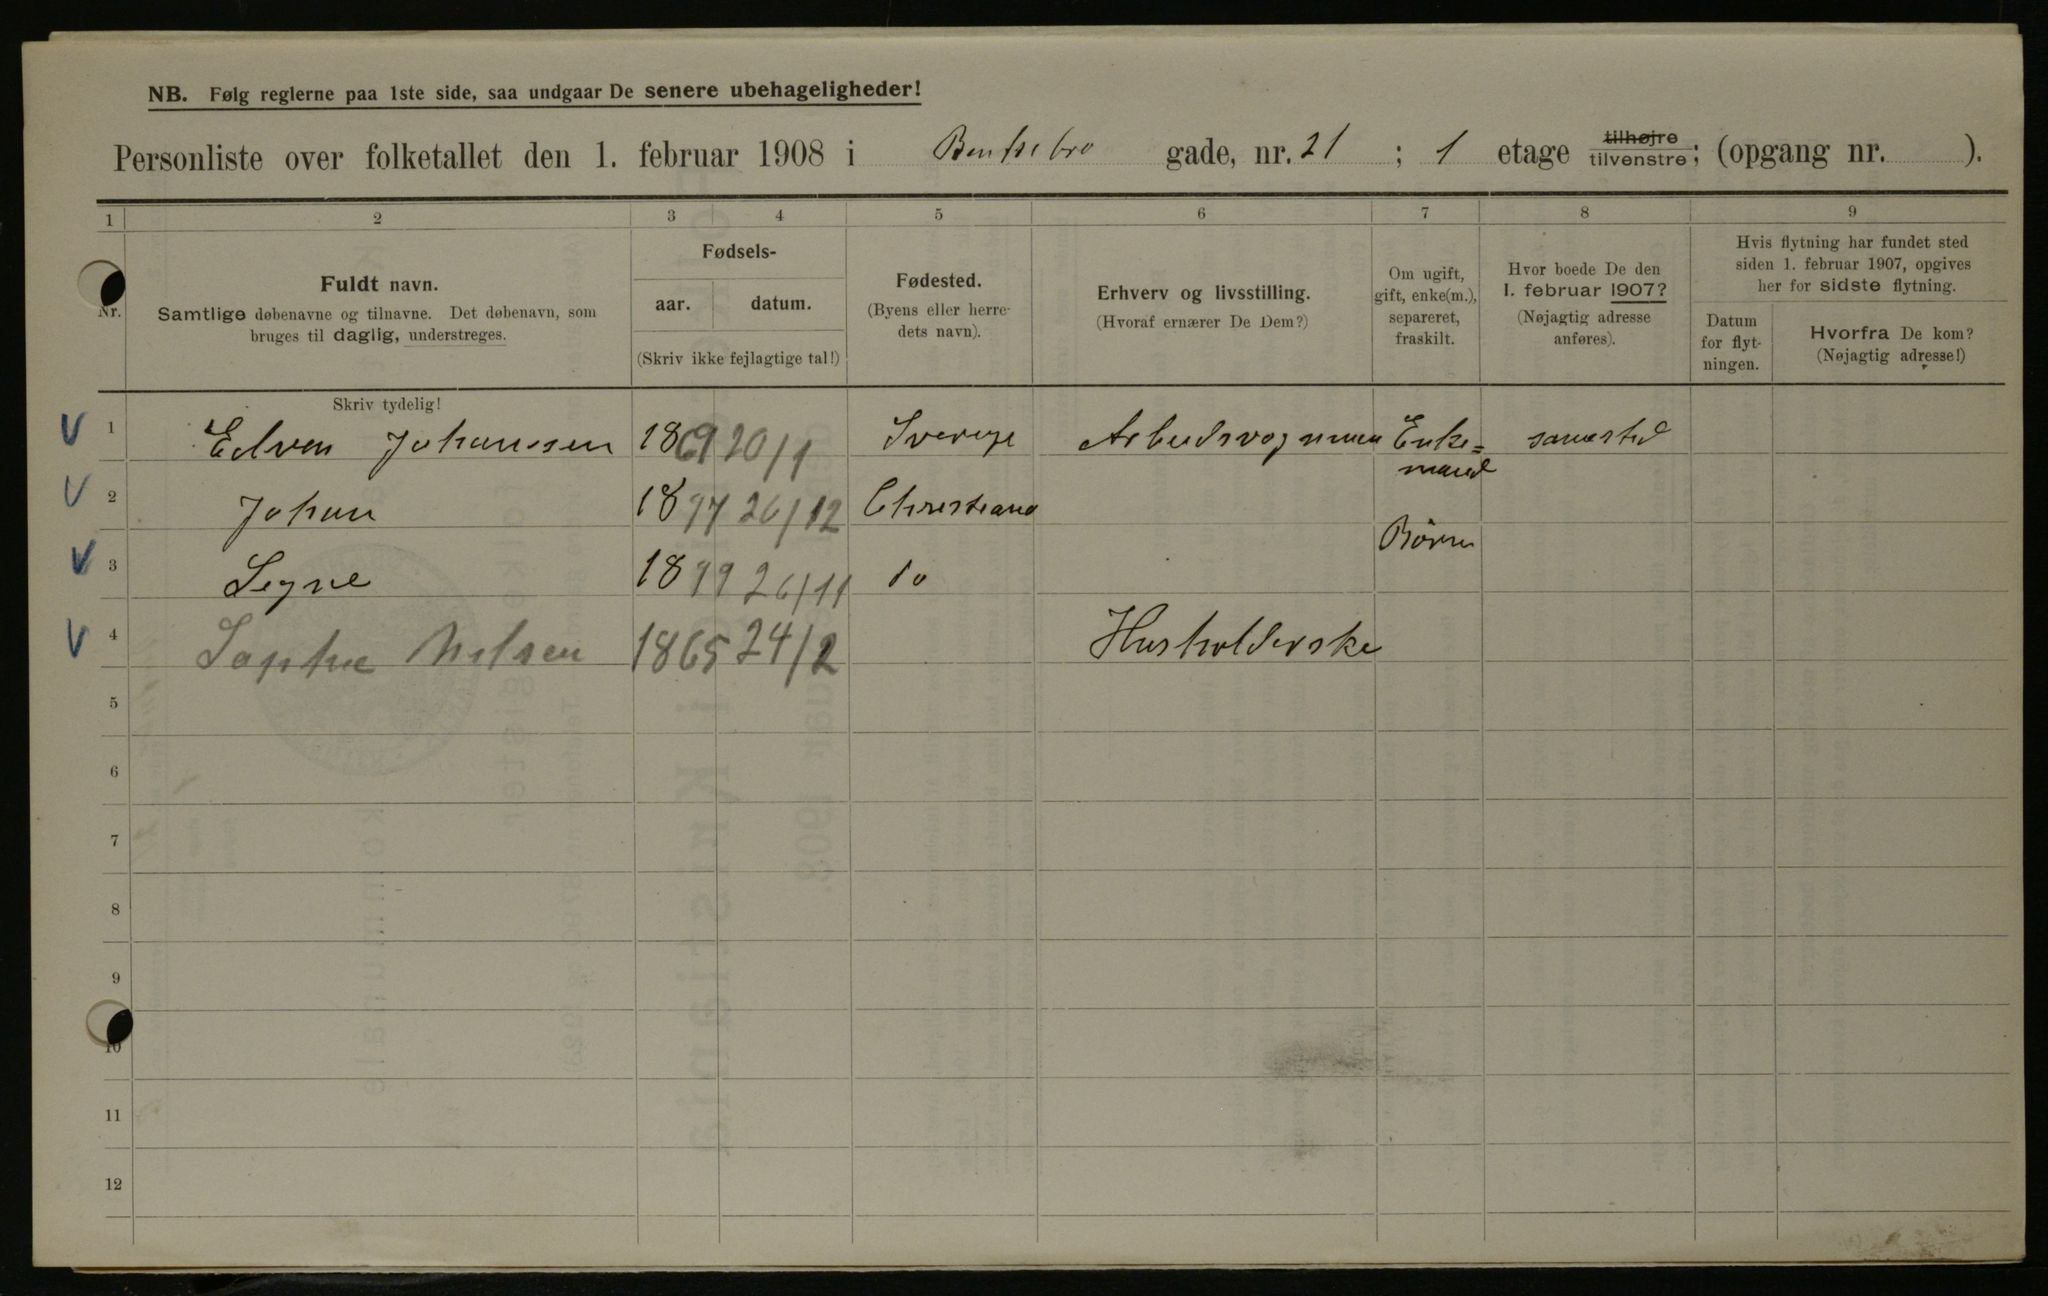 NB. Følg reglerne paa 1ste side, saa undgaar De senere ubehageligheder!
Personliste over folketallet den 1. februar 1908 i Bentsebro gade, nr. 21 ; 1 etage tilhøjre tilvenstre; (opgang nr. ).
1 2 3 4 5 6 7 8 9
Nr.
Fuldt navn.
Samtlige døbenavne og tilnavne. Det døbenavn, som
bruges til daglig, understreges.
Fødsels-
aar. datum.
(Skriv ikke fejlagtige tal!)
Fødested.
(Byens eller herre-
dets navn).
Erhverv og livsstilling.
(Hvoraf ernærer De Dem?)
Om ugift,
gift, enke(m.),
separeret,
fraskilt.
Hvor boede De den
1. februar 1907?
(Nøjagtig adresse
anføres).
Hvis flytning har fundet sted
siden 1. februar 1907, opgives
her for sidste flytning.
Datum
for flyt-
ningen.
Hvorfra De kom?
(Nøjagtig adresse!)
Skriv tydelig!
1 Edven Johanssen 1869 20/1 Sverige Enke= samested
mand
2 Johan 1897 26/12 Christiania
Børn
3 Segne 1899 26/11 do
4 Sophie Nilsen 1865 24/2 Husholderske
5
6
7
8
9
10
11
12